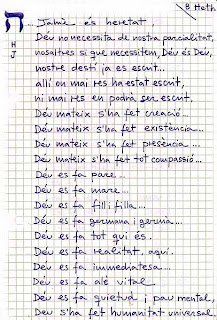 8 Heth
ח ... Jamie és heretat,
H Déu no necessita de nostra parcialitat,
J nosaltres sí que necessitem, Déu és Déu,
nostre destí ja és escrit...
allí on mai res ha estat escrit,
ni mai res en podrà ser escrit.
Déu mateix s'ha fet creació...
Déu mateix s'ha fet existència...
Déu mateix s'ha fet presència...
Déu mateix s'ha fet tot compassió...
Déu es fa pare...
Déu es fa mare...
Déu es fa fill i filla...
Déu es fa germana i germà...
Déu es fa tot qui és.
Déu es fa realitat, aquí.
Déu es fa immediatesa...
Déu es fa alè vital
Déu es fa quietud i pau mental,
Déu s'ha fet humanitat universal.